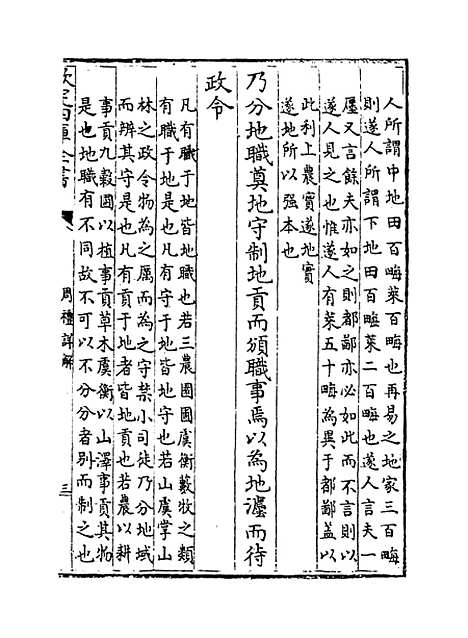 人所謂中地田百畮萊百畮也再易之地家三百畮
則遂人所謂下地田百畮萊二百畮也遂人言夫一
廛又言餘夫亦如之則都鄙亦必如此而不言則以
遂人見之也惟遂人有萊五十畮為異于都鄙蓋以
此利上農實遂地實
遂地所以强本也
乃分地職奠地守制地貢而頒職事焉以為地灋而待
政令
凡有職于地皆地職也若三農園圃虞衡藪牧之類
有職于地是也凡有守于地皆地守也若山虞掌山
林之政令物為之厲而為之守禁小司徒乃分地域
而辨其守是也凡有貢于地者皆地貢也若農以耕
事貢九穀圃以植事貢草木虞衡以山澤事貢其物
是也地職有不同故不可以不分分者别而制之也
欽定四庫全書
周禮詳解
三